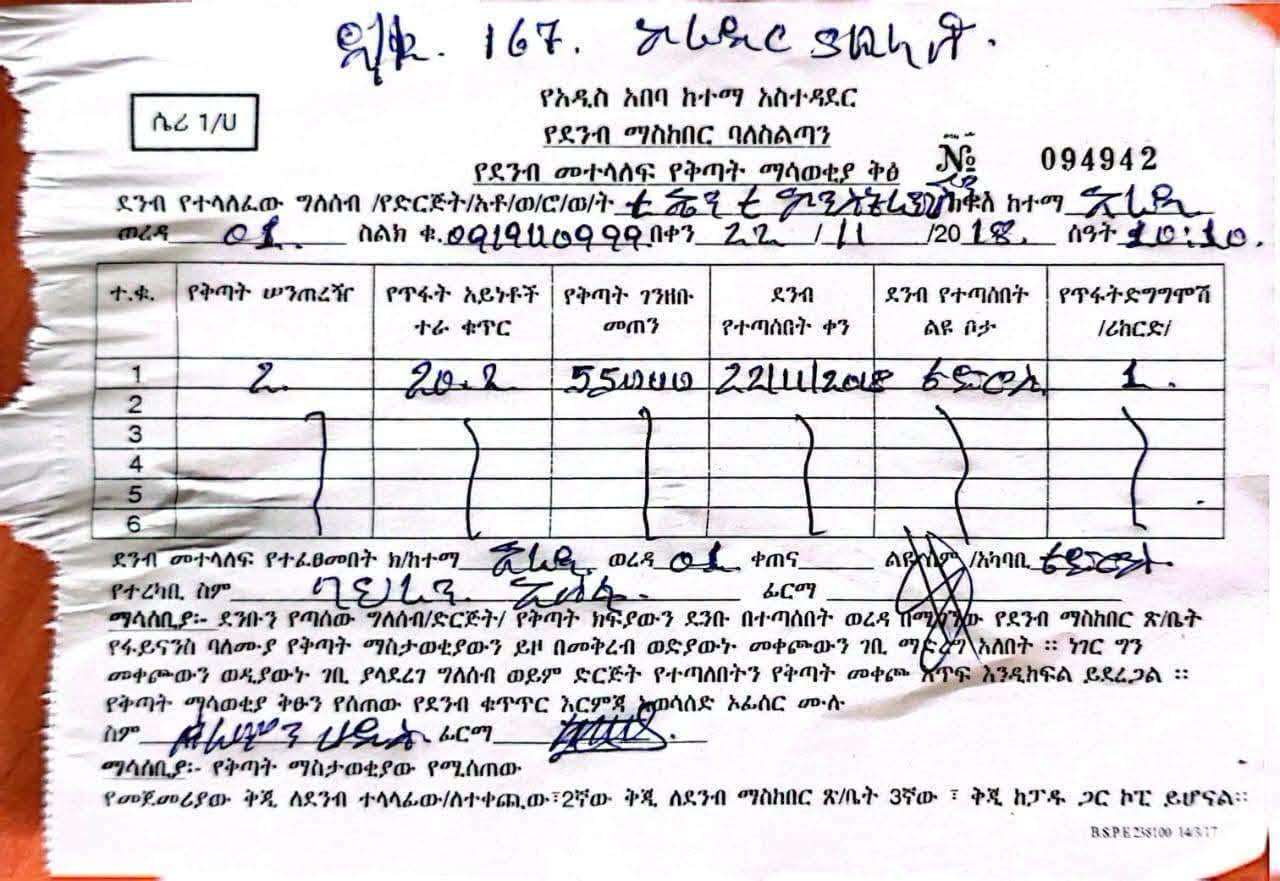 ደ/ቁ. 167.
ሴሪ 1/ሀ
የአዲስ አበባ ከተማ አስተዳደር
የደንብ ማስከበር ባለስልጣን
የደንብ መተላለፍ የቅጣት ማሳወቂያ ቅፅ № 094942
ደንብ የተላለፈው ግለሰብ /የድርጅት/አቶ/ወ/ሮ/ወ/ት ክ/ክፍለ ከተማ
ወረዳ 01. ስልክ ቁ. በቀን 22 / 11 /2018. ሰዓት 10:10.
ተ.ቁ. የቅጣት ሠንጠረዥ የጥፋት አይነቶች ተራ ቁጥር የቅጣት ገንዘቡ መጠን ደንብ የተጣሰበት ቀን ደንብ የተጣሰበት ልዩ ቦታ የጥፋትድግግሞሽ /ሪከርድ/
1 2. 20.2 55000 22/11/2018 1.
2
3
4
5
6
ደንብ መተላለፍ የተፈፀመበት ክ/ከተማ ወረዳ 01. ቀጠና ልዩ ስም /አካባቢ
የተረካቢ ስም ፊርማ
ማሳሰቢያ፡- ደንቡን የጣሰው ግለሰብ/ድርጅት/ የቅጣት ክፍያውን ደንቡ በተጣሰበት ወረዳ በሚገኘው የደንብ ማስከበር ጽ/ቤት
የፋይናንስ ባለሙያ የቅጣት ማስታወቂያውን ይዞ በመቅረብ ወድያውኑ መቀጮውን ገቢ ማድረግ አለበት ። ነገር ግን
መቀጮውን ወዲያውኑ ገቢ ያላደረገ ግለሰብ ወይም ድርጅት የተጣለበትን የቅጣት መቀጮ እጥፍ እንዲከፍል ይደረጋል ።
የቅጣት ማሳወቂያ ቅፁን የሰጠው የደንብ ቁጥጥር እርምጃ አወሳሰድ ኦፊሰር ሙሉ
ስም ፊርማ
ማሳሰቢያ፡- የቅጣት ማስታወቂያው የሚሰጠው
የመጀመሪያው ቅጂ ለደንብ ተላላፊው/ለተቀጪው፣2ኛው ቅጂ ለደንብ ማስከበር ጽ/ቤት 3ኛው ፣ ቅጂ ከፓዱ ጋር ኮፒ ይሆናል።
B.S.P.E 238100 14/3/17